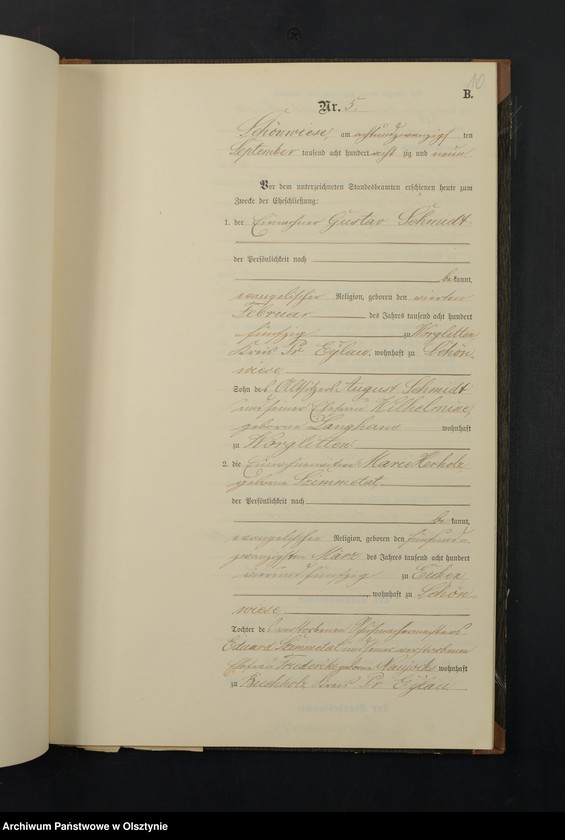 10
B.
Nr. 5.
Schönwiese, am achtundzwanzigsten
September tausend acht hundert acht zig und neun.
Vor dem unterzeichneten Standesbeamten erschienen heute zum
Zwecke der Eheschließung:
1. der Einwohner Gustav Schmidt
der Persönlichkeit nach
be kannt,
evangelischer Religion, geboren den vierten
Februar des Jahres tausend acht hundert
fünfzig zu Worglitten
Kreis Pr Eylau, wohnhaft zu Schön
wiese
Sohn des Altsitzers August Schmidt
und seiner Ehefrau Wilhelmine,
geborene Langhans wohnhaft
zu Worglitten
2. die Marie Herholz
geborene Szimmetat,
der Persönlichkeit nach
be kannt,
evangelischer Religion, geboren den fünfund
zwanzigsten März des Jahres tausend acht hundert
vierundfünfzig zu Eichen,
, wohnhaft zu Schön
wiese
Tochter des verstorbenen
Eduard und seiner verstorbenen
Ehefrau Friederike geborene wohnhaft
zu Buchholz Kreis Pr Eylau
Archiwum Państwowe w Olsztynie